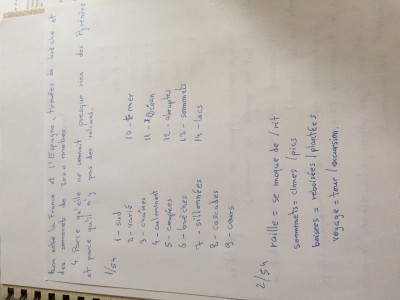 tion entre la France et l'Espagne, trouées de brèche et
des sommets de 3000 mètres.
4. Parce qu'elle ne connait presque rien des Pyrénées
et parce qu'il n'y pas des volcans.
1/54
1 - sud
2 - varié
3 - chaînes
4 - culminant
5 - coupées
6 - brèches
7 - sillonnées
8 - cascades
9 - cours
10 - mer
11 - Océan
12 - abruptes
13 - sommets
14 - lacs
2/54
raille = se moque de / rit
sommets = cimes / pics
boisées = reboisées / plantées
voyage = tour / excursion.